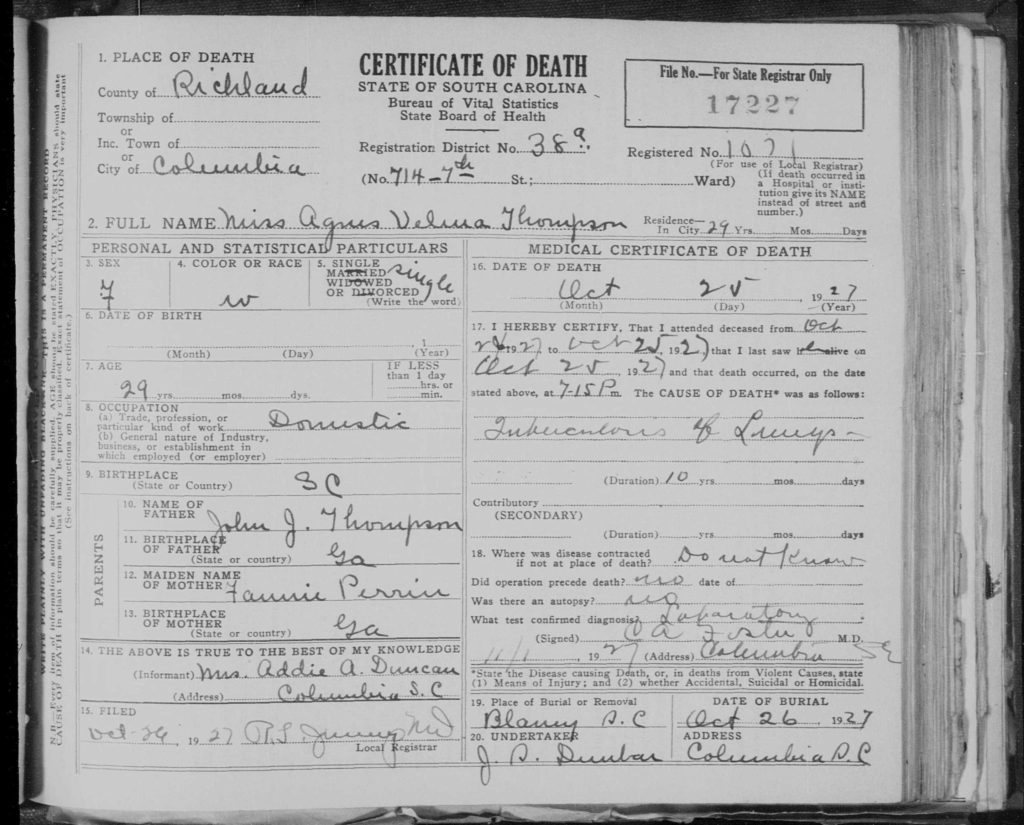 1. PLACE OF DEATH
County of Richland
Township of
or
Inc. Town of
or
City of Columbia
CERTIFICATE OF DEATH
STATE OF SOUTH CAROLINA
Bureau of Vital Statistics
State Board of Health
Registration District No. 38a.
(No. 714-7th St.; Ward)
File No.—For State Registrar Only
17227
Registered No. 1071
(For use of Local Registrar)
(If death occurred in
a Hospital or insti-
tution give its NAME
instead of street and
number.)
2. FULL NAME Miss Agnus Velma Thompson
Residence—
In City 29 Yrs. Mos. Days
PERSONAL AND STATISTICAL PARTICULARS
3. SEX
F
4. COLOR OR RACE
W
5. SINGLE
MARRIED
WIDOWED
OR DIVORCED
single
(Write the word)
6. DATE OF BIRTH
, 1
(Month) (Day) (Year)
7. AGE
29 yrs. mos. dys.
IF LESS
than 1 day
hrs. or
min.
8. OCCUPATION
(a) Trade, profession, or
particular kind of work Domestic
(b) General nature of Industry,
business, or establishment in
which employed (or employer)
9. BIRTHPLACE
(State or Country) SC
PARENTS
10. NAME OF
FATHER John J. Thompson
11. BIRTHPLACE
OF FATHER
(State or country) Ga
12. MAIDEN NAME
OF MOTHER Fannie Perrin
13. BIRTHPLACE
OF MOTHER
(State or country) Ga
14. THE ABOVE IS TRUE TO THE BEST OF MY KNOWLEDGE
(Informant) Mrs. Addie A. Duncan
(Address) Columbia S.C
15. FILED
Oct-26, 1927
Local Registrar
MEDICAL CERTIFICATE OF DEATH
16. DATE OF DEATH
Oct 25, 1927
(Month) (Day) (Year)
17. I HEREBY CERTIFY, That I attended deceased from Oct
1927 to Oct 25, 1927 that I last saw h alive on
Oct 25, 1927 and that death occurred, on the date
stated above, at 7-15 P m. The CAUSE OF DEATH* was as follows:
Tuberculosis of Lungs-
(Duration) 10 yrs. mos. days
Contributory
(SECONDARY)
(Duration) yrs. mos. days
18. Where was disease contracted
if not at place of death? Do not Know
Did operation precede death? no date of
Was there an autopsy? no
What test confirmed diagnosis? Laboratory
(Signed) C A Foster M.D.
11/1, 1927 (Address) Columbia SC
*State the Disease causing Death, or, in deaths from Violent Causes, state
(1) Means of Injury; and (2) whether Accidental, Suicidal or Homicidal.
19. Place of Burial or Removal
Blaney S.C
DATE OF BURIAL
Oct 26, 1927
20. UNDERTAKER
J. S. Dunbar
ADDRESS
Columbia S.C
WRITE PLAINLY WITH UNFADING BLACK INK—THIS IS A PERMANENT RECORD
N. B.—Every item of information should be carefully supplied. AGE should be stated EXACTLY. PHYSICIANS should state
CAUSE OF DEATH in plain terms so that it may be properly classified. Exact statement of OCCUPATION is very important
(See instructions on back of certificate.)